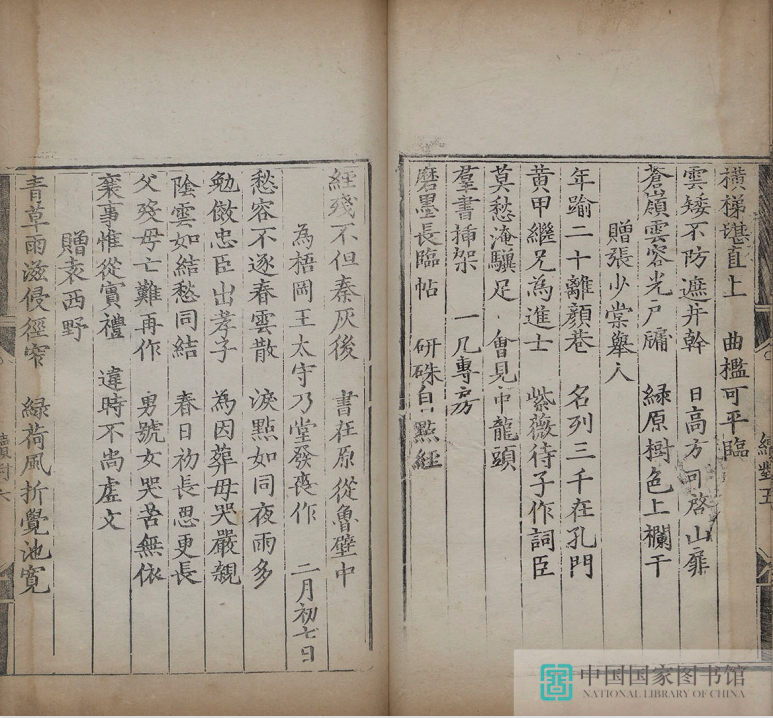 橫梯堪直上　曲檻可平臨
雲矮不防遮井幹　日高方可啓山扉
蒼嶺雲容光戶牖　綠原樹色上欄干
贈張少棠舉人
年踰二十離顏巷　名列三千在孔門
黃甲繼兄為進士　紫薇待子作詞臣
莫愁淹驥足　會見中龍頭
羣書揷架　一几專方
磨墨長臨帖　研硃自點經
續對五
經殘不但秦灰後　書在原從魯壁中
為梧岡王太守乃堂發喪作　二月初七日
愁容不逐春雲散　淚點如同夜雨多
勉傚忠臣出孝子　為因葬母哭嚴親
陰雲如結愁同結　春日初長思更長
父殁母亡難再作　男號女哭苦無依
喪事惟從實禮　違時不尚虛文
贈袁西野
青草雨滋侵徑窄　綠荷風折覺池寬
續對六
中国国家图书馆
NATIONAL LIBRARY OF CHINA